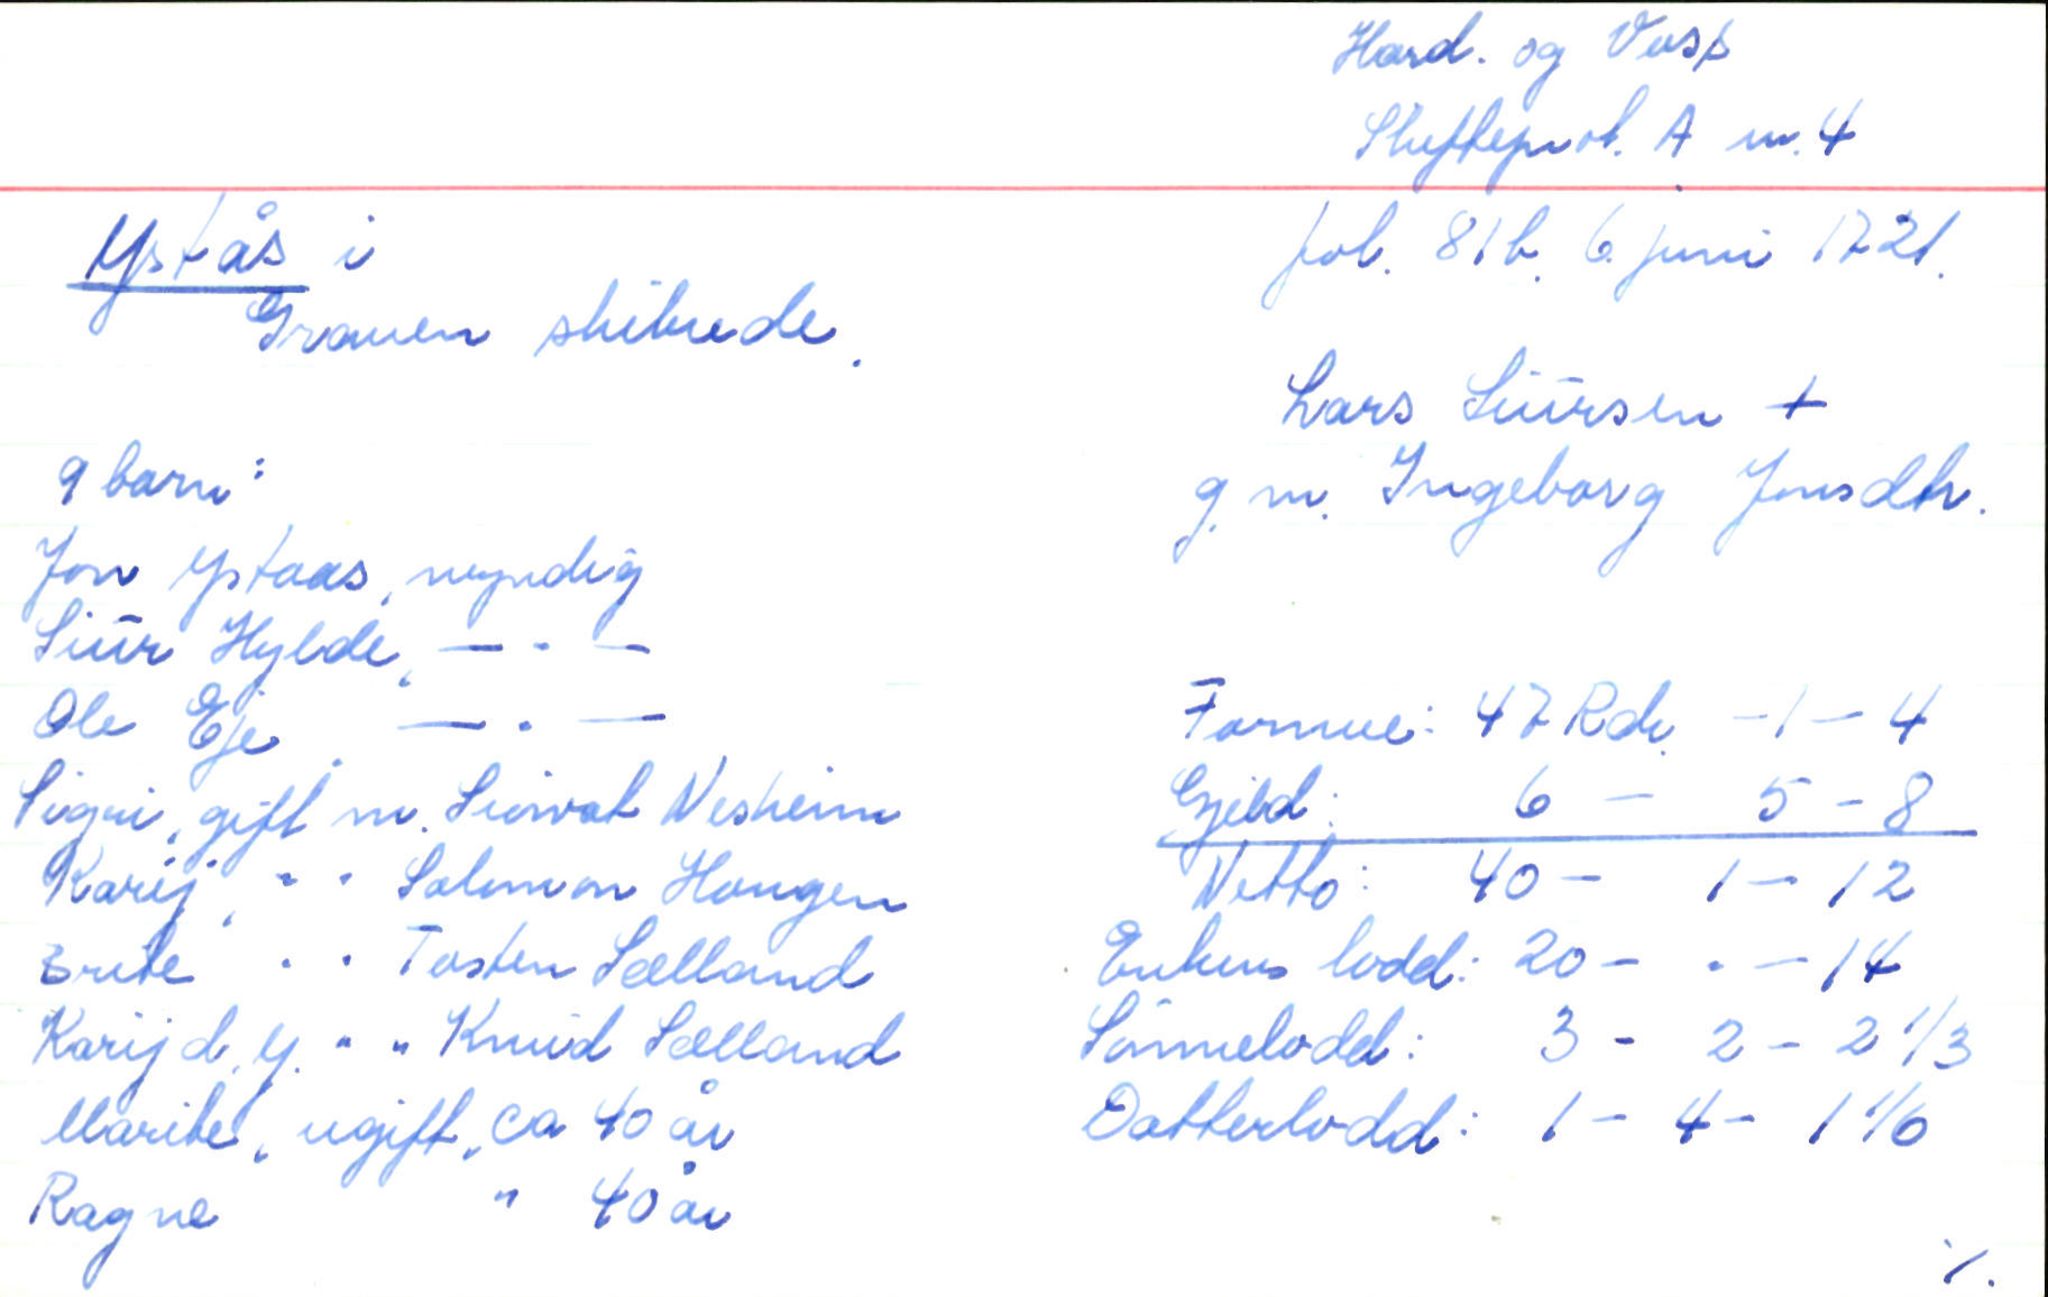 Hard. og Voss
Skifteprot. A nr. 4
fol. 81b. 6. juni 1721.
Ystås i
Graven skibrede.
Lars Siūrsen +
g. m. Ingeborg Jonsdtr.
9 barn:
Jon Ystaas, myndig
Siūr Hylde, — " —
Ole Eje, — " —
Sigri, gift m. Siovat Nesheim
Karij, " " Salomon Hougen
Brite " " Tosten Sælland
Karij d. y. " " Knud Sælland
Marite, ugift, ca 40 år
Ragne " 40 år
Formue: 47 Rdr. - 1 - 4
Gjeld: 6 - 5 - 8
Netto: 40 - 1 - 12
Enkens lodd: 20 - . - 14
Sønnelodd: 3 - 2 - 2 1/3
Datterlodd: 1 - 4 - 1 1/6
./.